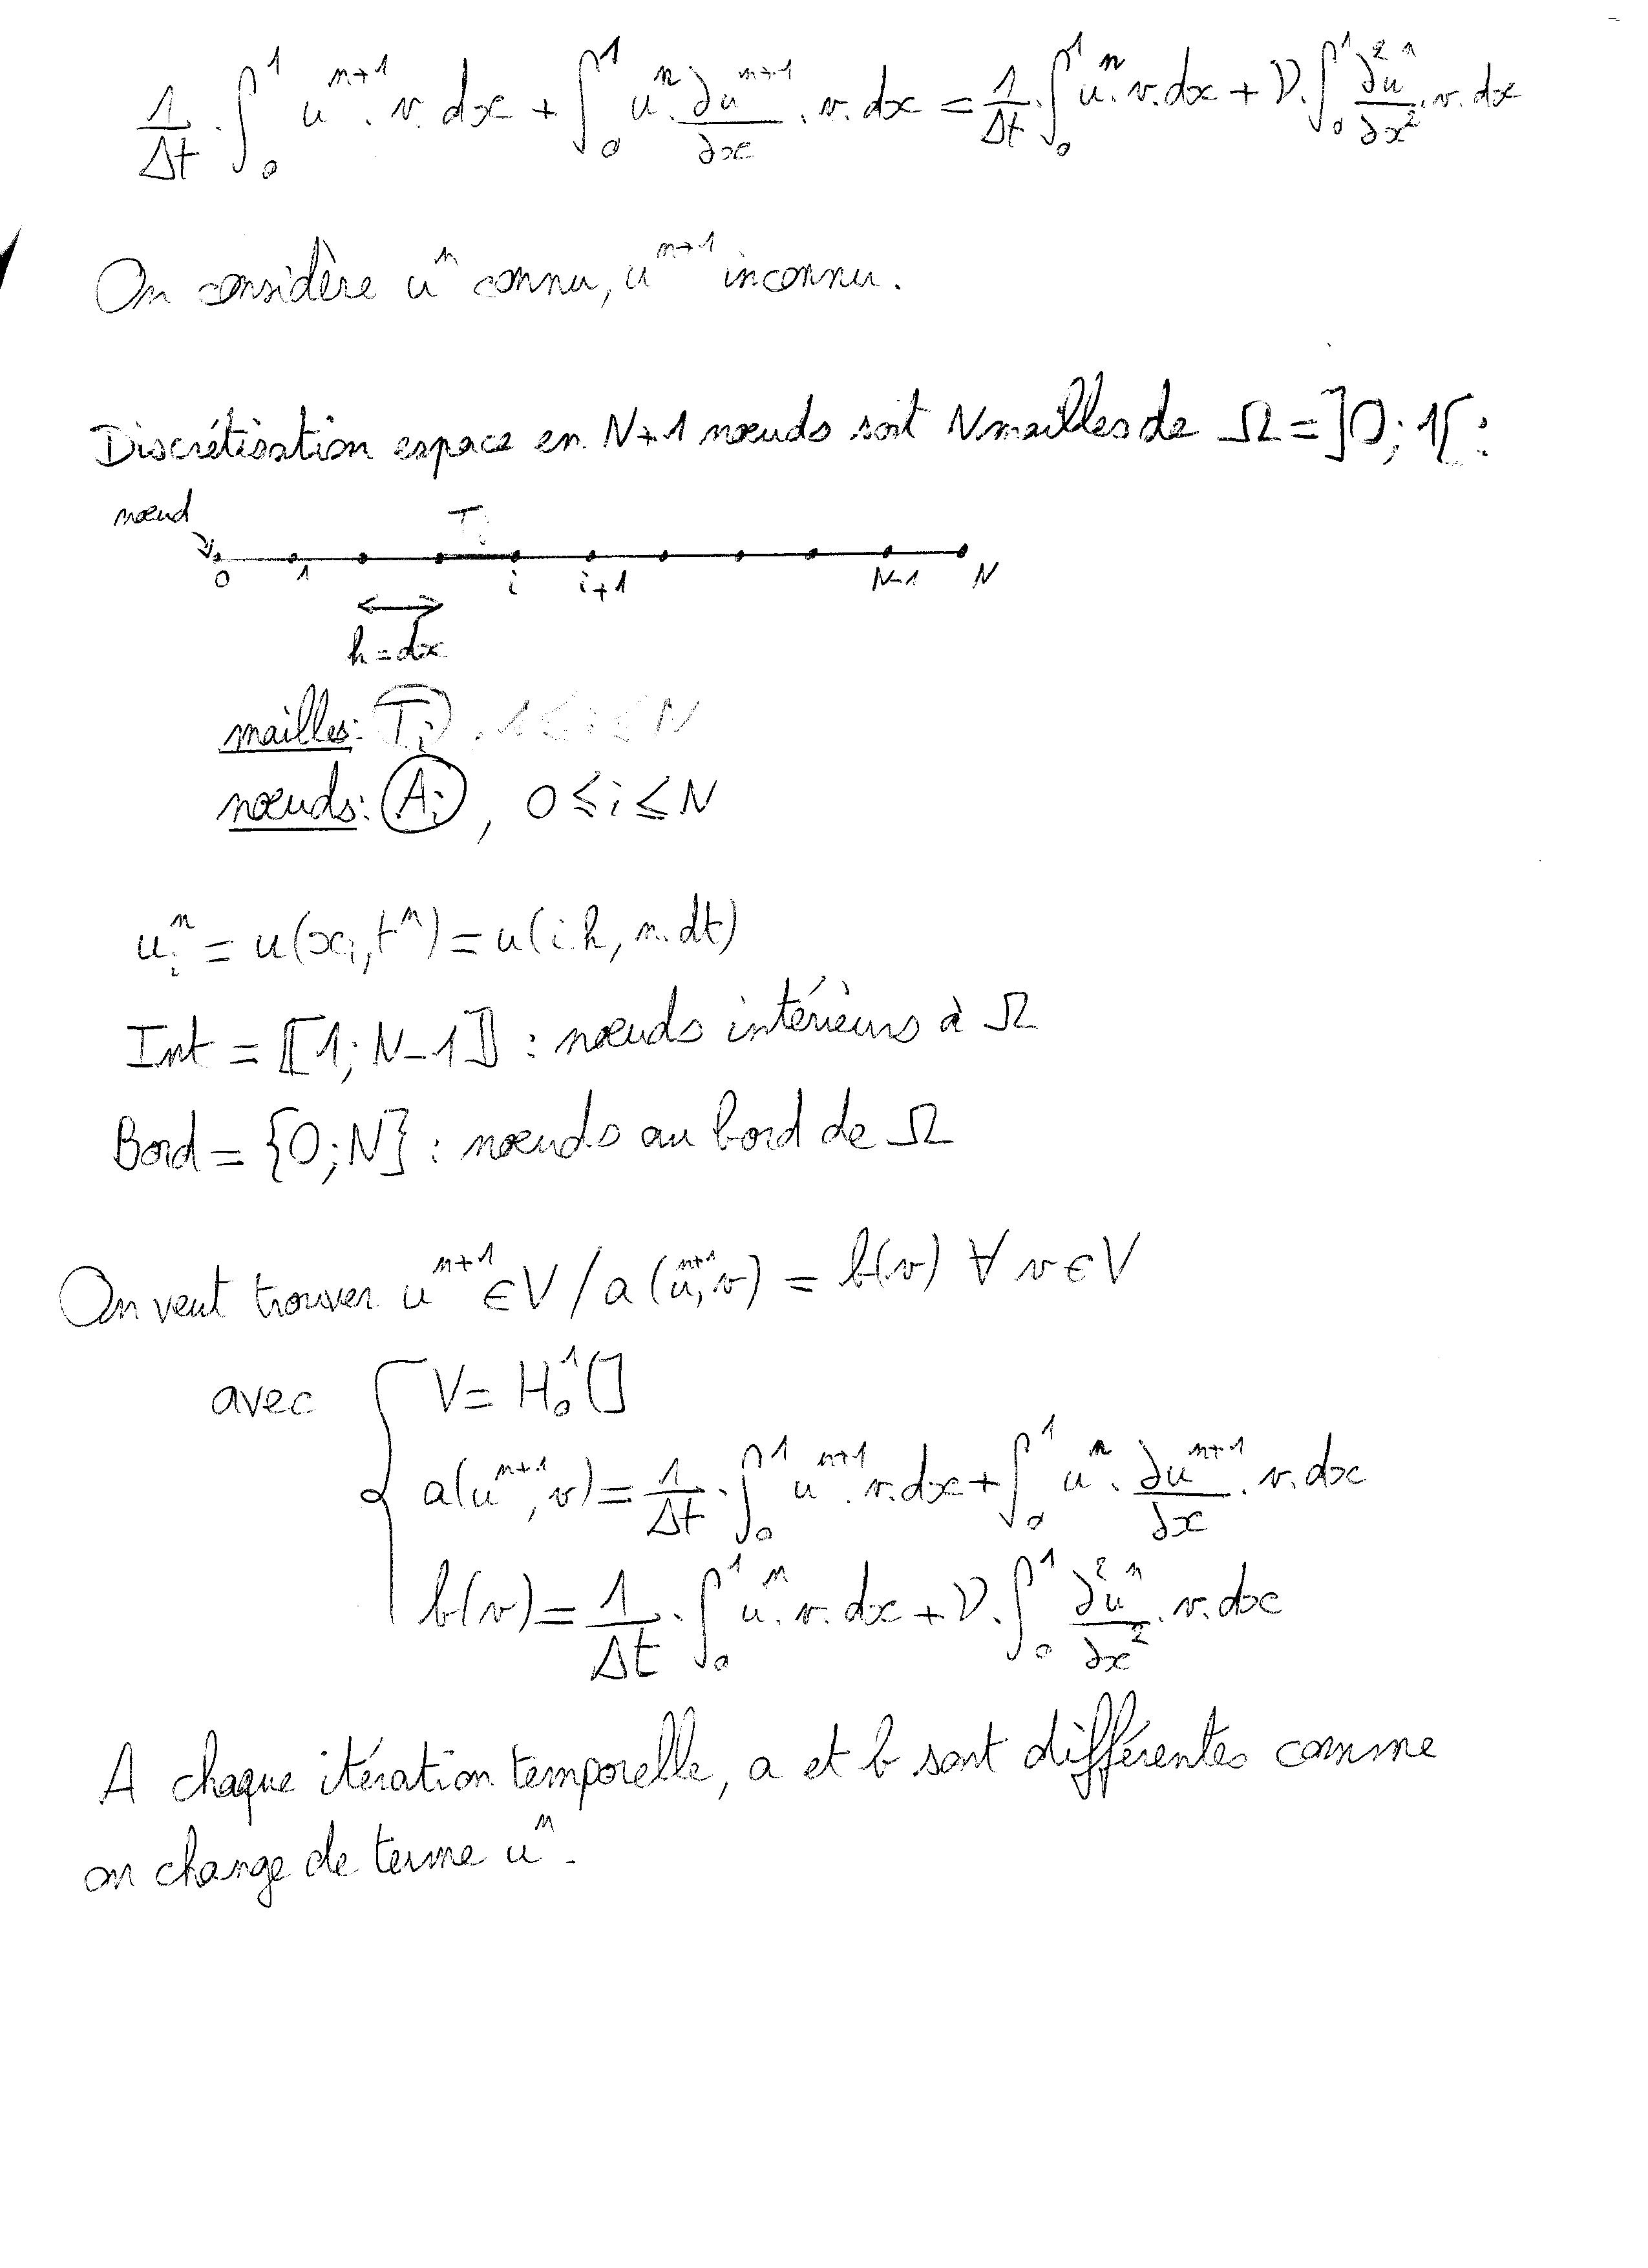 1/Δt · ∫₀¹ uⁿ⁺¹ . v. dx + ∫₀¹ uⁿ. ∂uⁿ⁺¹/∂x . v. dx = 1/Δt . ∫₀¹ uⁿ. v. dx + ν. ∫₀¹ ∂²uⁿ/∂x² . v. dx
On considère uⁿ connu, uⁿ⁺¹ inconnu.
Discrétisation espace en N+1 nœuds soit N mailles de Ω = ]0; 1[ :
nœud
Tᵢ
0 1 i i+1 N-1 N
h = dx
mailles: Tᵢ , 1 ≤ i ≤ N
nœuds: Aᵢ , 0 ≤ i ≤ N
uᵢⁿ = u(xᵢ, tⁿ) = u(i.h, n.dt)
Int = ⟦1; N-1⟧ : nœuds intérieurs à Ω
Bord = {0; N} : nœuds au bord de Ω
On veut trouver uⁿ⁺¹ ∈ V / a(uⁿ⁺¹, v) = b(v) ∀ v ∈ V
avec { V = H¹₀()
a(uⁿ⁺¹, v) = 1/Δt . ∫₀¹ uⁿ⁺¹. v. dx + ∫₀¹ uⁿ . ∂uⁿ⁺¹/∂x . v. dx
b(v) = 1/Δt . ∫₀¹ uⁿ. v. dx + ν. ∫₀¹ ∂²uⁿ/∂x² . v. dx
A chaque itération temporelle, a et b sont différentes comme
on change de terme uⁿ.